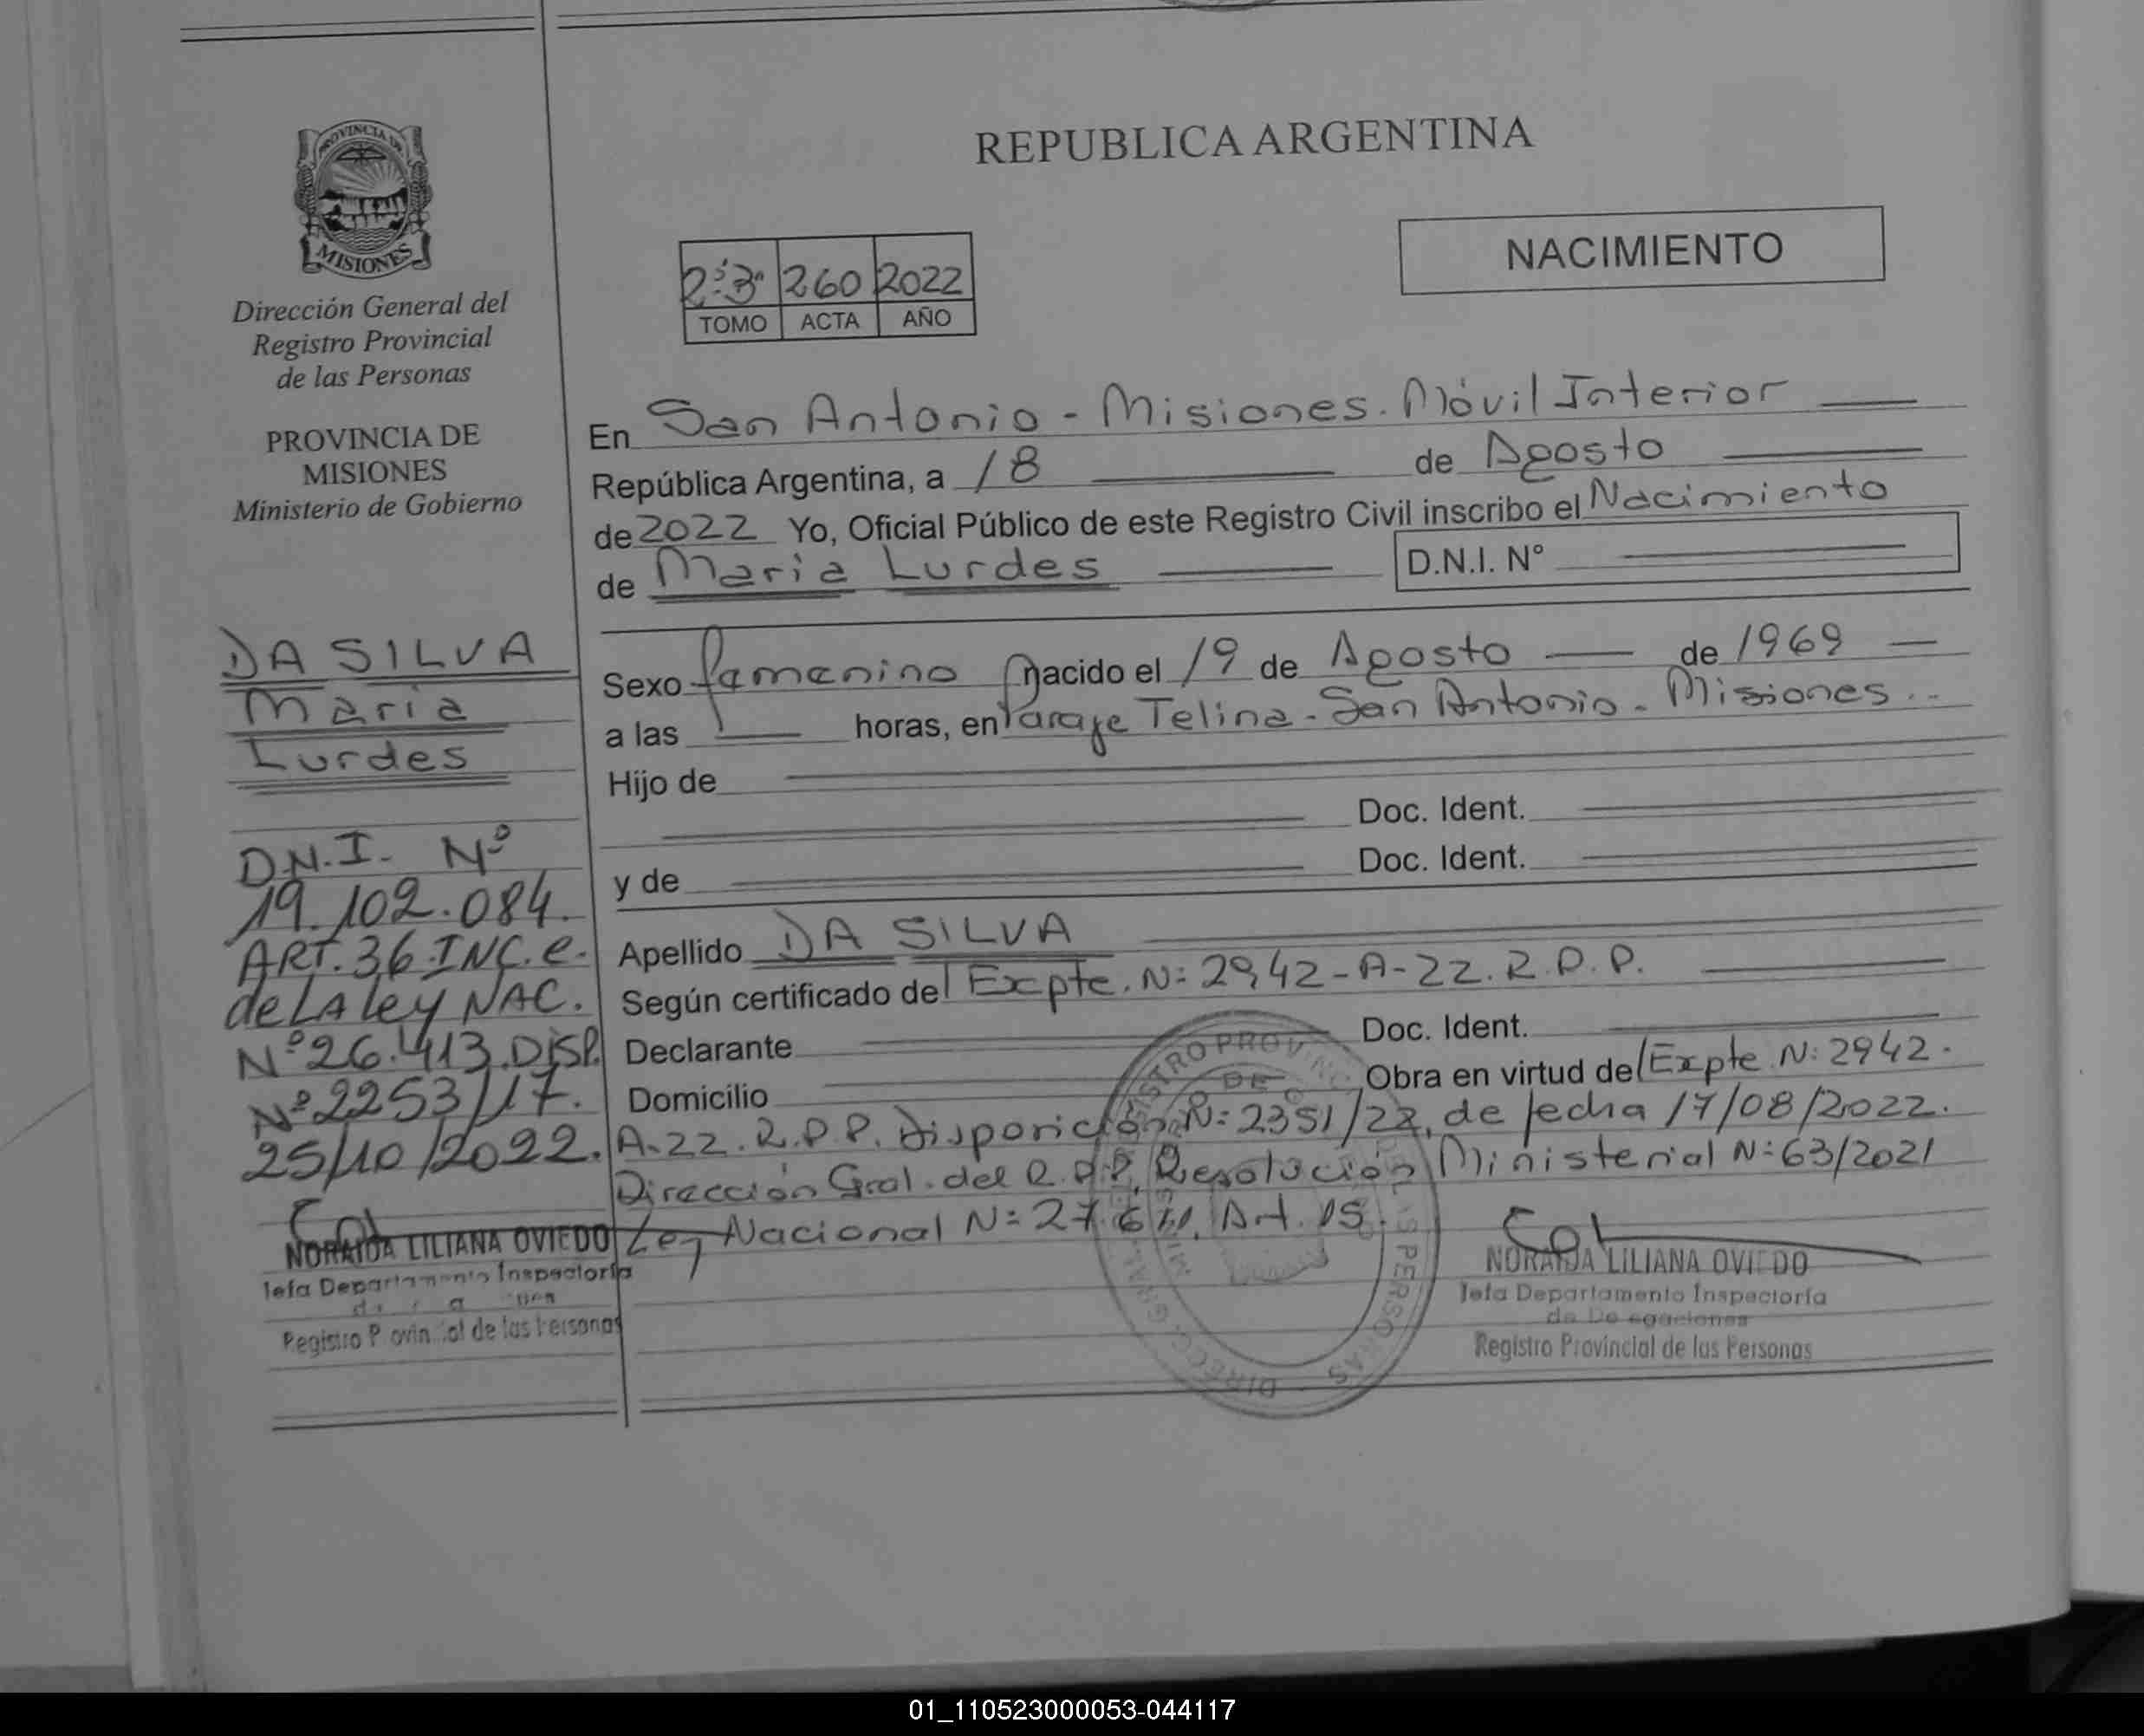 REPUBLICA ARGENTINA
PROVINCIA DE
MISIONES
Dirección General del
Registro Provincial
de las Personas
PROVINCIA DE
MISIONES
Ministerio de Gobierno
DA SILVA
Maria
Lurdes
D.N.I. Nº
19.102.084.
ART. 36 INC. e.
de LA Ley NAC.
Nº 26.413. DISP.
Nº 2253/17.
25/10/2022.
NORAIDA LILIANA OVIEDO
Jefa Departamento Inspectoría
Registro Provincial de las Personas
NACIMIENTO
260 2022
TOMO ACTA AÑO
En San Antonio - Misiones. Móvil Interior
República Argentina, a 18 de Agosto
de 2022 Yo, Oficial Público de este Registro Civil inscribo el Nacimiento
de Maria Lurdes D.N.I. Nº
Sexo famenino nacido el 19 de Agosto de 1969
a las horas, en Paraje Telina - San Antonio - Misiones..
Hijo de
Doc. Ident.
y de Doc. Ident.
Apellido DA SILVA
Según certificado del Expte. N: 2942-A-22. R.P.P.
Declarante Doc. Ident.
Domicilio Obra en virtud del Expte N: 2942.
A-22. R.P.P. Disposición N: 2351/22, de fecha 17/08/2022.
Dirección Gral. del R.P.P, Resolución Ministerial N: 63/2021
Ley Nacional N: 27.611, Art. 15.
NORAIDA LILIANA OVIEDO
Jefa Departamento Inspectoría
de Delegaciones
Registro Provincial de las Personas
01_110523000053-044117